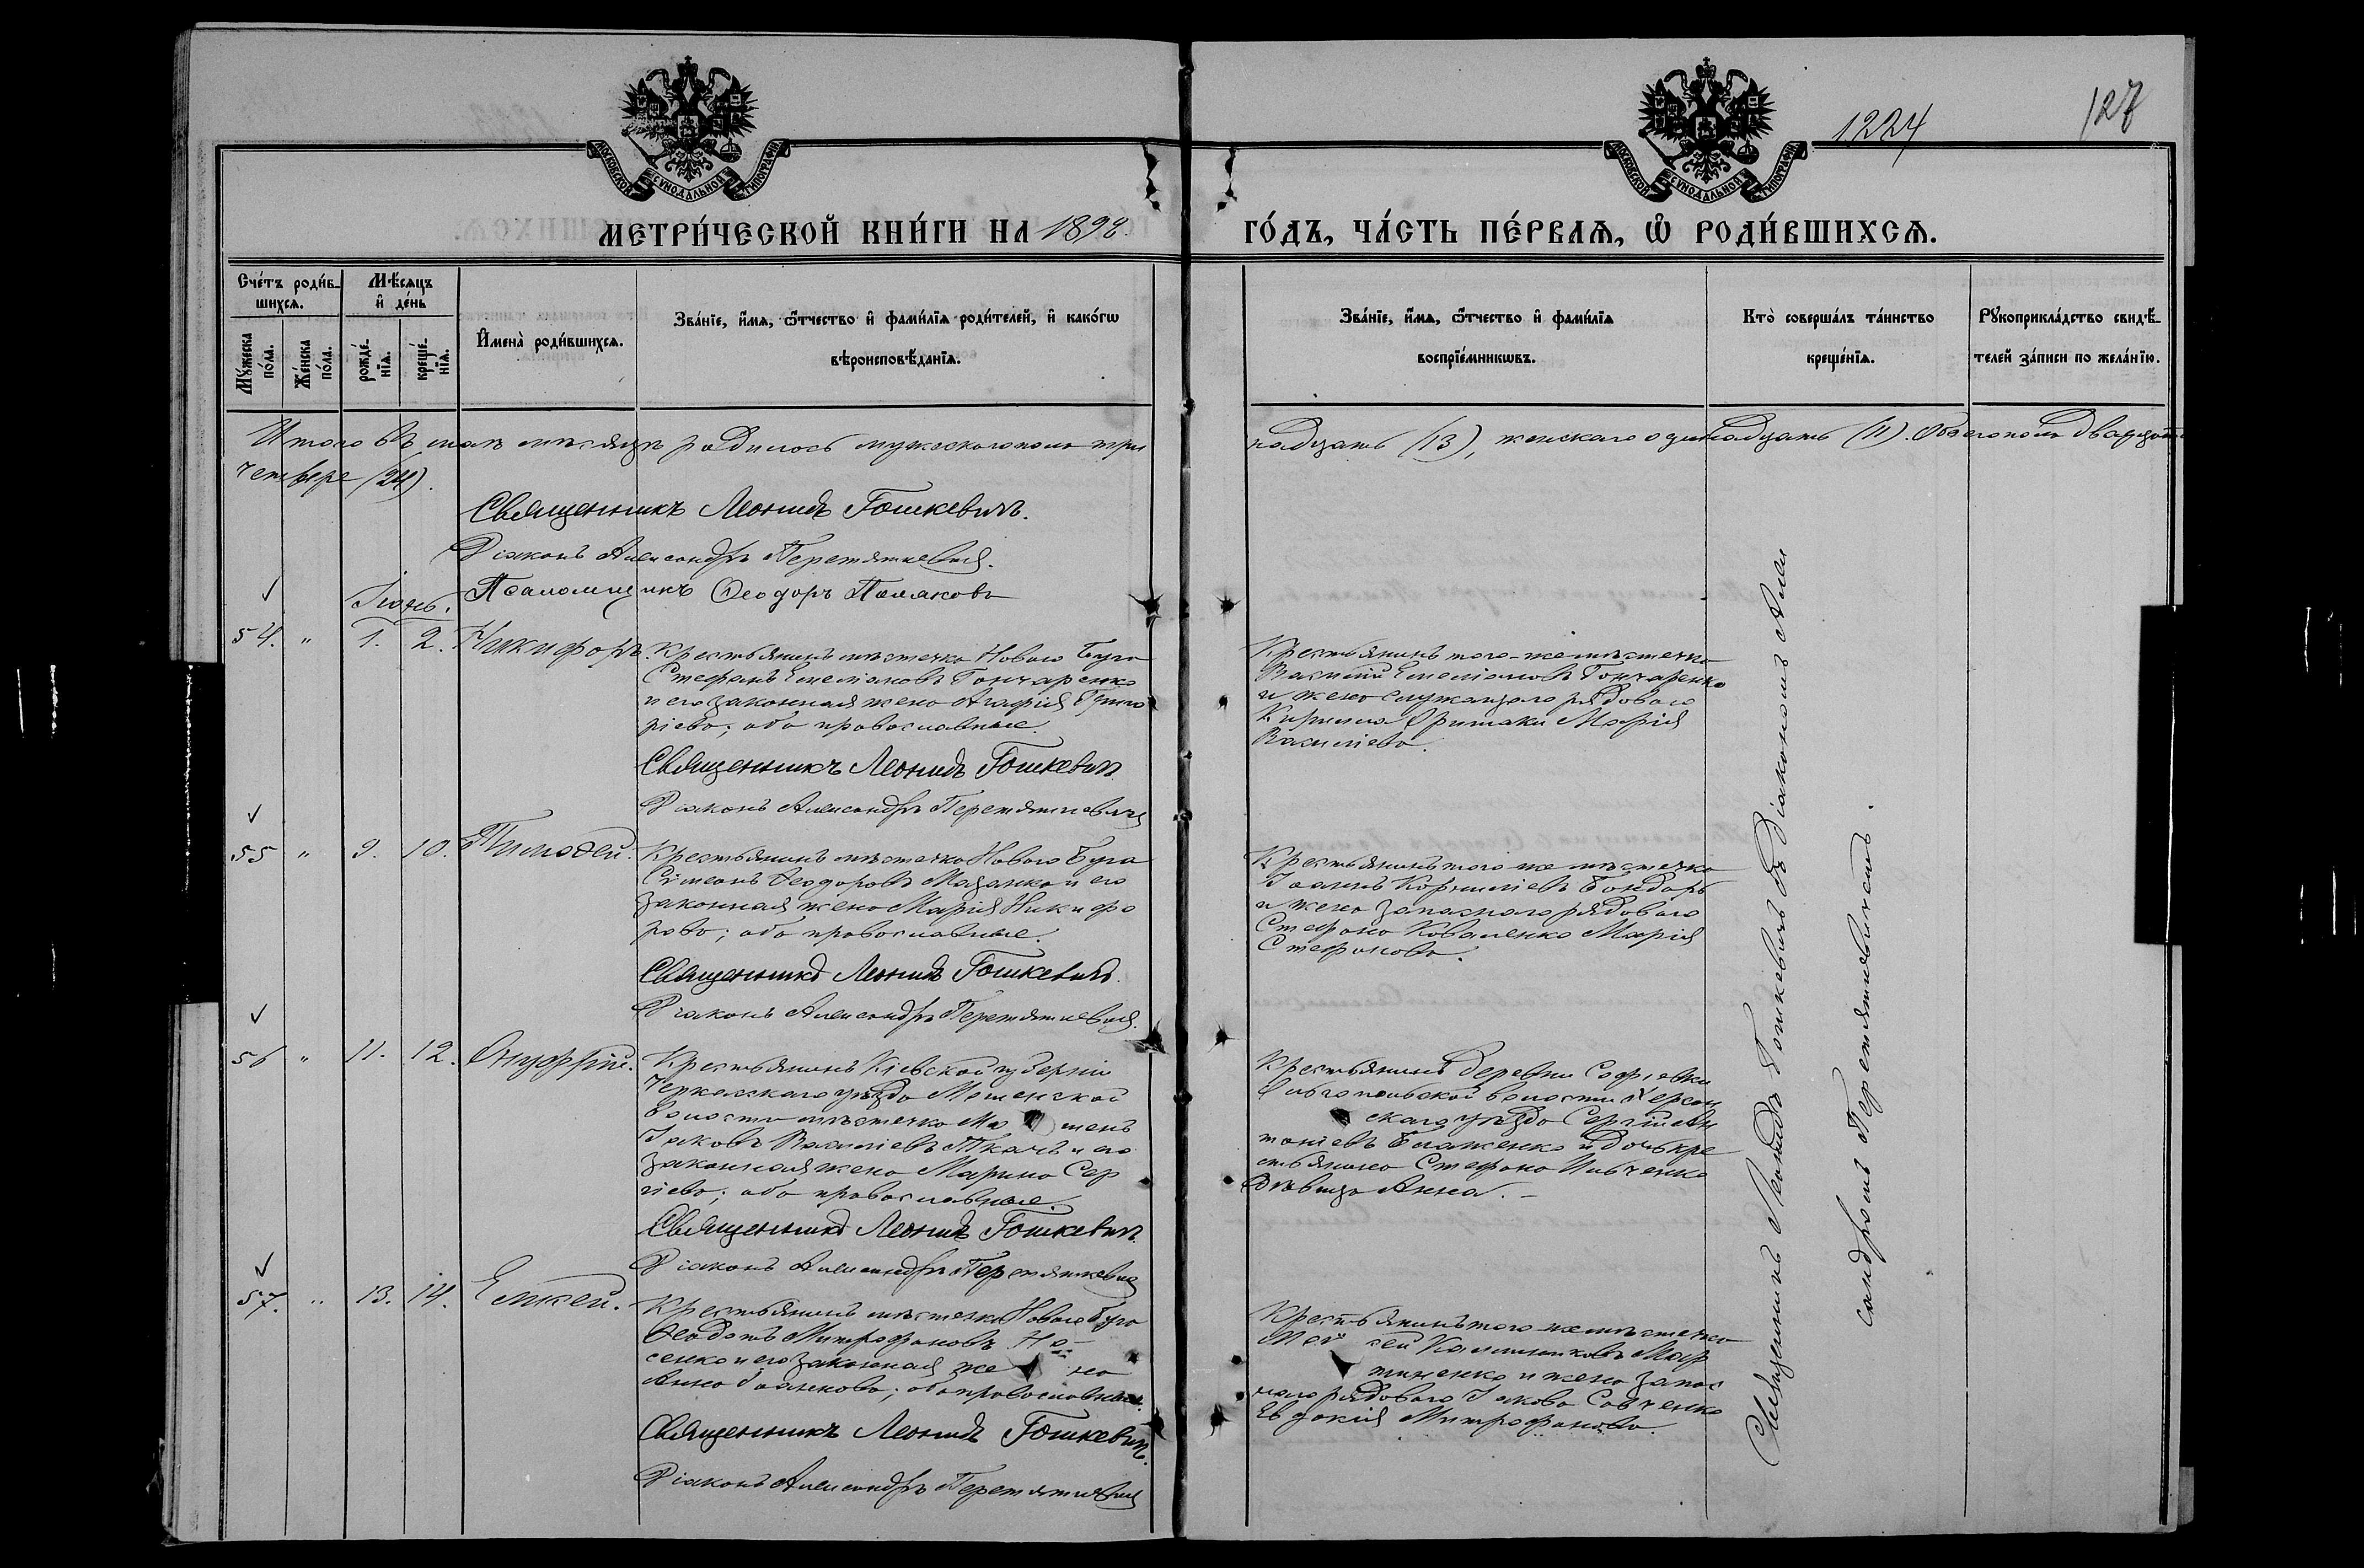 1224
127
МОСКОВСКОЙ СѴНОДАЛЬНОЙ ТИПОГРАФІИ
МОСКОВСКОЙ СѴНОДАЛЬНОЙ ТИПОГРАФІИ
МЕТРИ́ЧЕСКОЙ КНИ́ГИ НА 1898.
ГО́ДЪ, ЧА́СТЬ ПЕ́РВАѦ, Ѽ РОДИ́ВШИХСѦ.
Сче́тъ роди́в-
шихсѧ.
Мꙋ́жеска
по́ла.
Же́нска
по́ла.
Мѣ́сѧцъ
и҆ де́нь
рожде́-
нїѧ.
креще́-
нїѧ.
И҆мена̀ роди́вшихсѧ.
Зва́нїе, и҆́мѧ, ѻ҆́тчество и҆ фами́лїѧ роди́телей, и҆ како́гѡ
вѣроисповѣ́данїѧ.
Зва́нїе, и҆́мѧ, ѻ҆́тчество и҆ фами́лїѧ
воспрїе́мникѡвъ.
Кто̀ соверша́лъ та́инство
креще́нїѧ.
Рꙋкоприкла́дство свидѣ́-
телей за́писи по жела́нїю.
Итого въ маѣ мѣсяцѣ родилось мужескаго пола три
надцать (13), женскаго одинадцать (11). Обоего пола двадцать
четыре (24).
Священникъ Леонидъ Гошкевичъ.
Діаконъ Александръ Перетяткевичъ.
Псаломщикъ Ѳеодоръ Поляковъ
Іюнь.
54. " 1. 2. Никифоръ.
Крестьянинъ мѣстечка Новаго Буга
Стефанъ Емеліановъ Гончаренко
и его законная жена Агафія Григо
ріева; оба православные.
Священникъ Леонидъ Гошкевичъ.
Діаконъ Александръ Перетяткевичъ
Крестьянинъ того-же мѣстечка
Василій Емеліановъ Гончаренко
и жена служащаго рядоваго
Кирилла Марія
Василіева.
55 " 9. 10. Тимоѳей.
Крестьянинъ мѣстечка Новаго Буга
Симеонъ Ѳеодоровъ Мазанко и его
законная жена Марія Никифо
рова; оба православные.
Священникъ Леонидъ Гошкевичъ.
Діаконъ Александръ Перетяткевичъ.
Крестьянинъ того же мѣстечка
Іоаннъ Корниліевъ Бондарь
и жена запаснаго рядоваго
Стефана Коваленка Марія
Стефанова.
56 " 11. 12. Онуфрій.
Крестьянинъ Кіевской губерніи
Черкасскаго уѣзда Мошенской
волости мѣстечка Мошенъ
Іаковъ Василіевъ Ткачъ и его
законная жена Марина Сер
гіева; оба православные.
Священникъ Леонидъ Гошкевичъ.
Діаконъ Александръ Перетяткевичъ
Крестьянинъ деревни Софіевки
волости Херсон
скаго уѣзда Сергій Ан
тоніевъ и дочь кре
стьянина Стефана Ильченка
дѣвица Анна. -
57. " 13. 14. Елисей.
Крестьянинъ мѣстечка Новаго Буга
Ѳеодотъ Митрофановъ
сенко и его законная жена
Анна Іоаннова; оба православные.
Священникъ Леонидъ Гошкевичъ.
Діаконъ Александръ Перетяткевичъ
Крестьянинъ того же мѣстечка
Калинниковъ Мар
тиненко и жена запас
наго рядоваго Іакова Савченко
Евдокія Митрофанова.
Священникъ Леонидъ Гошкевичъ съ діакономъ Алек
сандромъ Перетяткевичемъ.